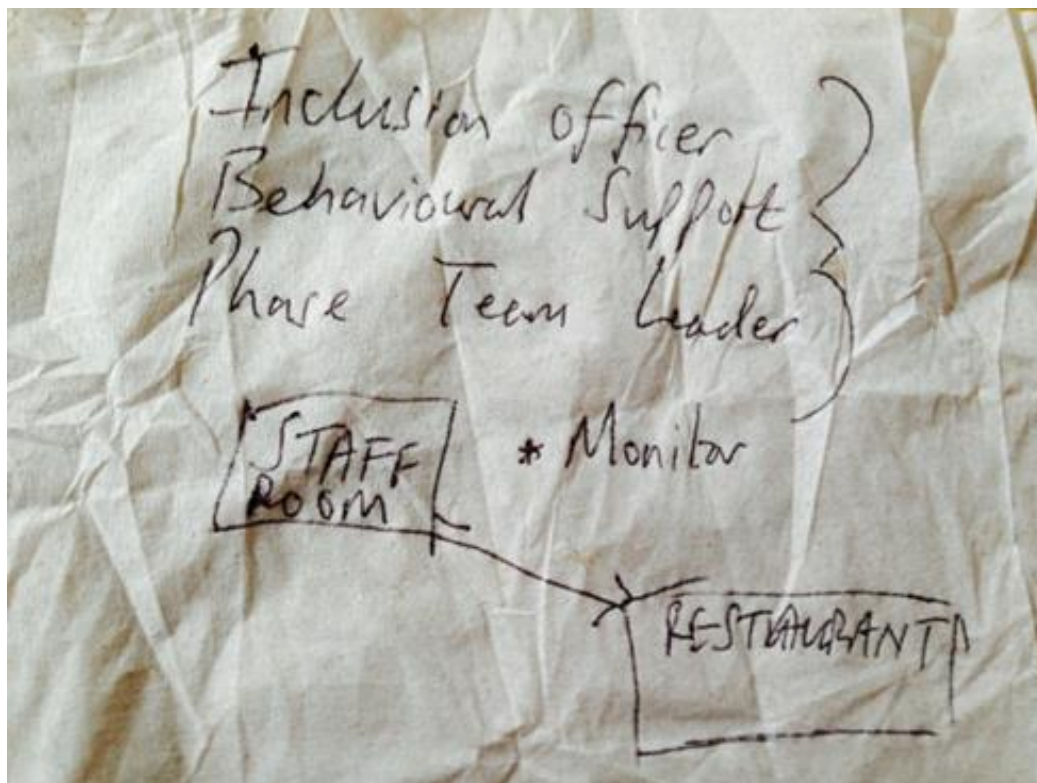 Inclusion officer
Behavioural Support
Phase Team Leader
STAFF
ROOM
* Monitor
RESTAURANT